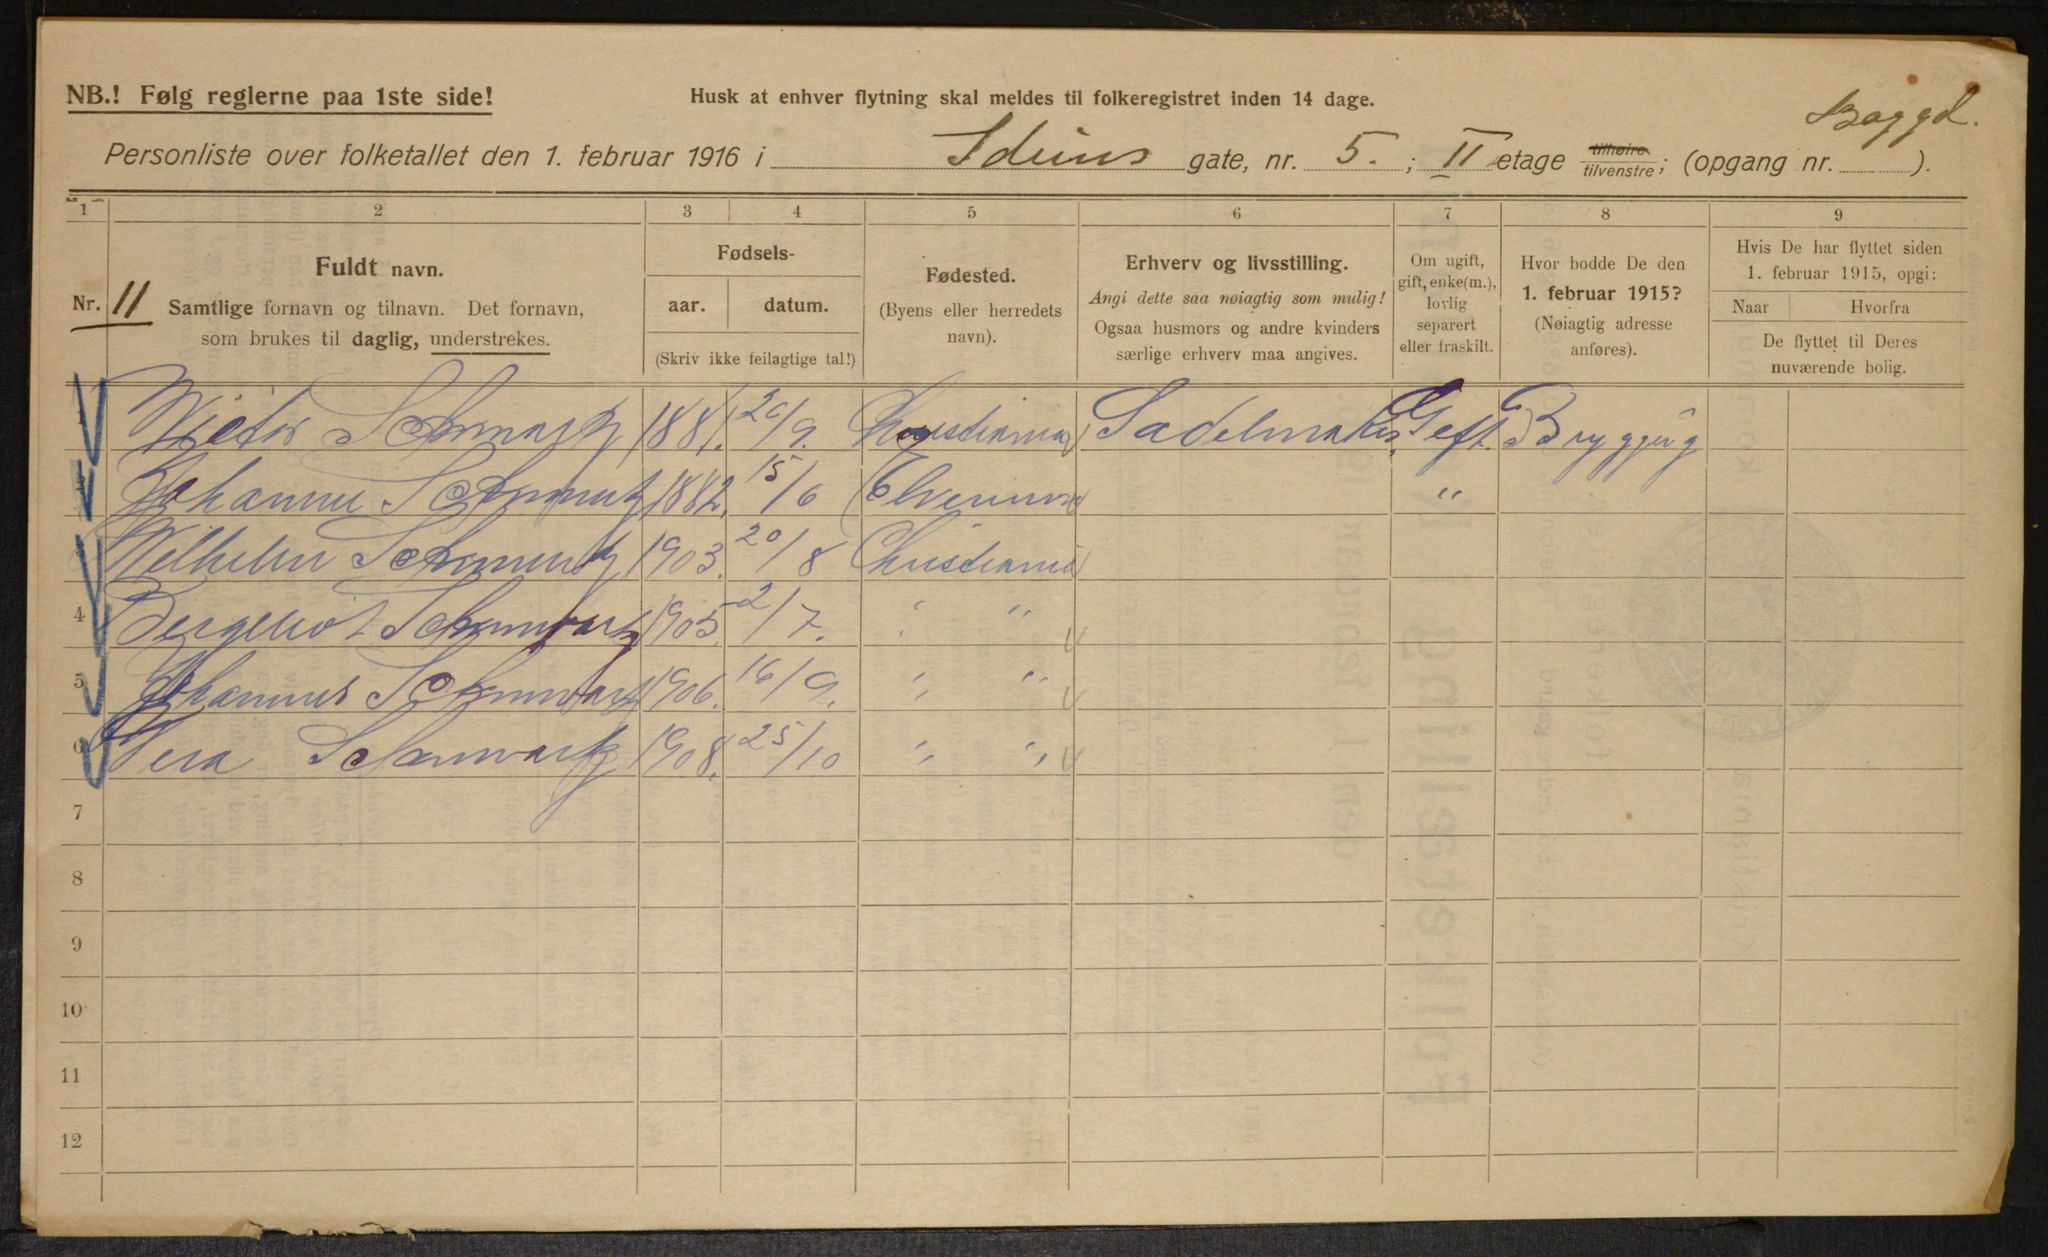 NB.! Følg reglerne paa 1ste side!
Husk at enhver flytning skal meldes til folkeregistret inden 14 dage.
Baggd.
Personliste over folketallet den 1. februar 1916 i Iduns gate, nr. 5. ; II etage tilhøire tilvenstre; (opgang nr. ).
1 2 3 4 5 6 7 8 9
Nr. 11
Fuldt navn.
Samtlige fornavn og tilnavn. Det fornavn,
som brukes til daglig, understrekes.
Fødsels-
aar. datum.
(Skriv ikke feilagtige tal!)
Fødested.
(Byens eller herredets
navn).
Erhverv og livsstilling.
Angi dette saa nøiagtig som mulig!
Ogsaa husmors og andre kvinders
særlige erhverv maa angives.
Om ugift,
gift, enke(m.),
lovlig
separert
eller fraskilt.
Hvor bodde De den
1. februar 1915?
(Nøiagtig adresse
anføres).
Hvis De har flyttet siden
1. februar 1915, opgi:
Naar Hvorfra
De flyttet til Deres
nuværende bolig.
Victor 1881. 20/9. Christiania Sadelmaker Gift.
1882. 15/6 Elverum "
Wilhelm 1903. 20/8 Christiania
4 1905. 2/7. " "
5 Johannes 1906. 16/9. " "
6 Vera Schwartz 1908. 25/10 " "
7
8
9
10
11
12